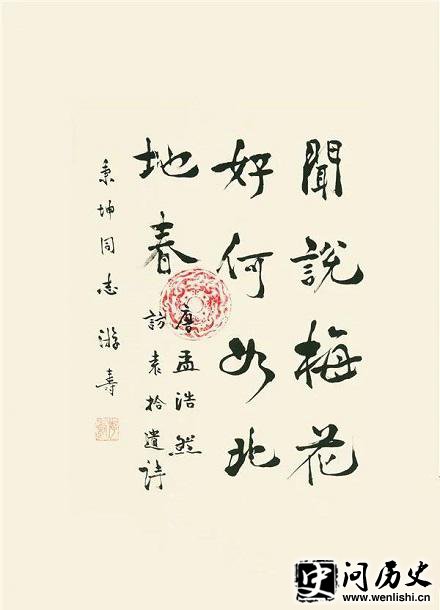 聞說梅花
好何如北
地春
唐孟浩然
訪袁拾遺詩
秉坤同志游壽
史问历史
www.wenlishi.cn